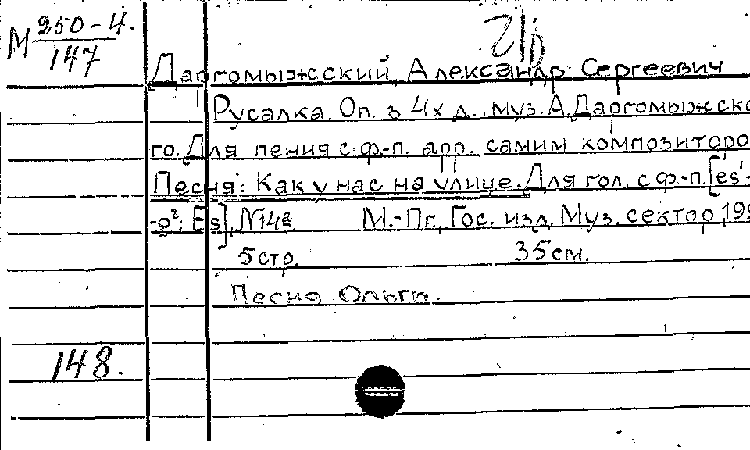 М 250-4.
147
Даргомыжский, Александр Сергеевич
Русалка. Оп. в 4х д., муз. А. Даргомыжско
го. Для пения с ф.-п. арр. самим композиторо
Песня: Как у нас на улице. Для гол. с ф.-п. [es'-
-g²; Es]. №14а М.-Пг., Гос. изд. Муз. сектор, 19
5 стр. 35 см.
Песня Ольги.
148.